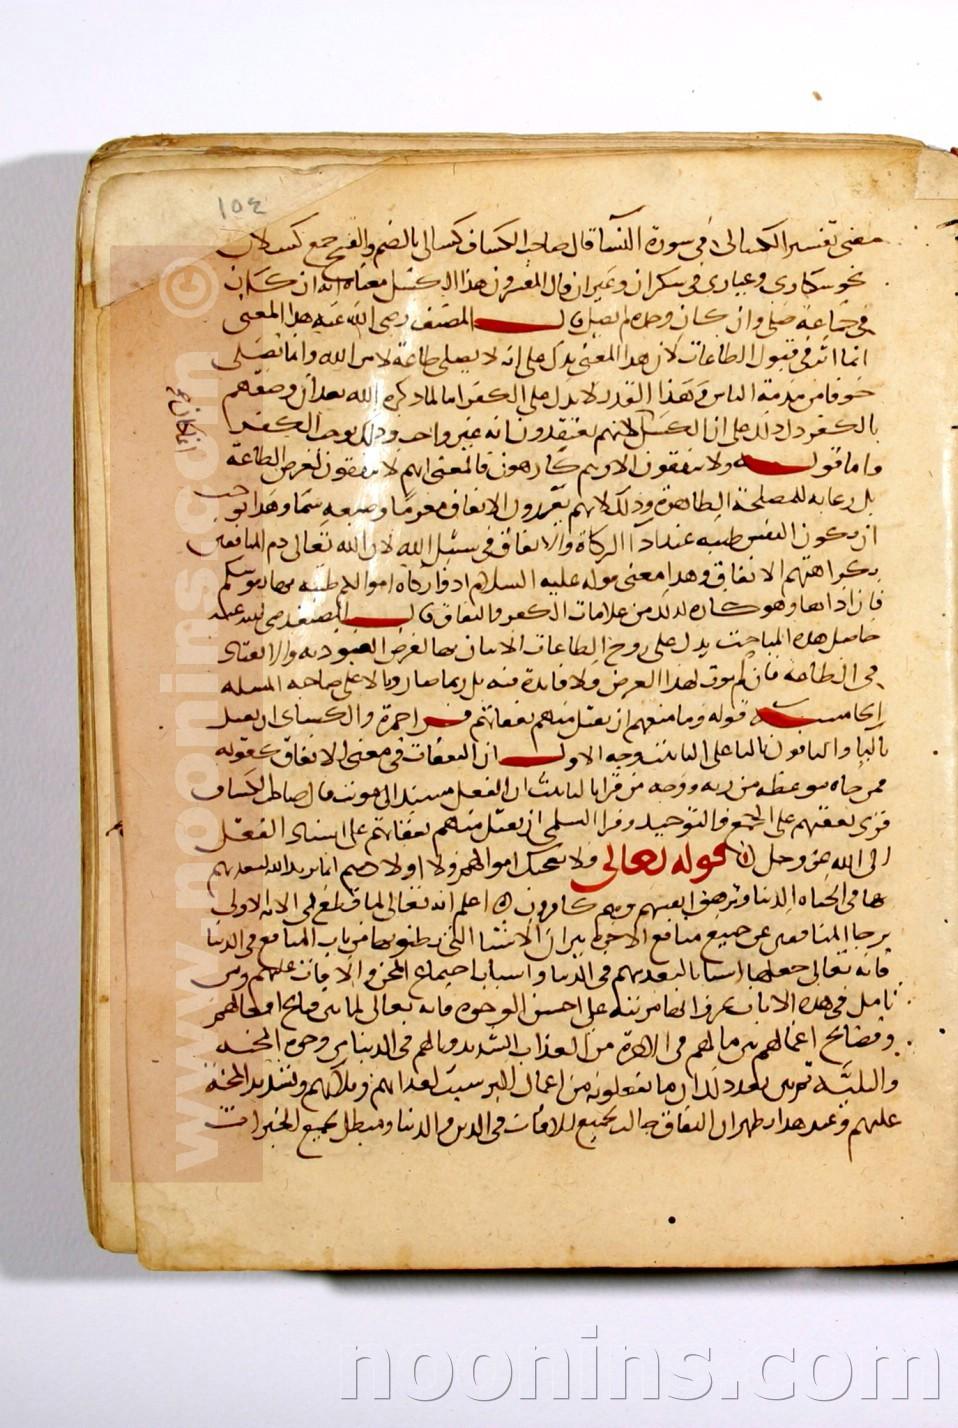 ١٥٤
معنى تفسير الكسالى في سورة النسآ قال صاحب الكشاف كسالى بالضم والفتح جمع كسلان
نحو سكارى وغيارى في سكران وغيران قال المفسرون هذا الكسل معناه انه ان كان
في جماعة صلى وان كان وحده لم يصل قال المصنف رضى الله عنه هذا المعنى
انما اثر في قبول الطاعات لان هذا المعنى يدل على انه لا يصلى طاعة لامر الله وانما يصلى
خوفا من مذمة الناس وهذا القدر لا يدل على الكفر اما لما ذكره الله بعد ان وصفهم
بالكفر دل ذلك على ان الكسل لانهم يعتقدون انه غير واجب وذلك يوجب الكفر
واما قوله ولا ينفقون الا وهم كارهون فالمعنى انهم لا ينفقون لغرض الطاعة
بل رعاية للمصلحة الظاهرة وذلك لانهم يقررون الانفاق مغرما وضيعه وهذا يوجب
ان يكون النفس طيبه عند ادآ الزكاة والانفاق في سبيل الله لان الله تعالى ذم المنافقين
بكراهتهم الانفاق وهذا معنى قوله عليه السلام ادوا زكاة اموالكم طيبه بها نفوسكم
فان اداها وهو كاره لذلك من علامات الكفر والنفاق قال المصنف رضى الله عنه
حاصل هذه المباحث يدل على روح الطاعات الاتيان بها لغرض العبودية والانقياد
في الطاعة فان لم يوت لهذا الغرض ولا فايدة فيه بل ربما صار وبالا على صاحبه المسله
الخامسه قوله وما منعهم ان يقبل منهم نفقاتهم قرا حمزة والكسائى ان يقبل
باليا والباقون بالتا على التانيث وجه الاول ان النفقات في معنى الانفاق كقوله
فمن جاه موعظه من ربه ووجه من قرا بالتانيث ان الفعل مسند الى مونث قال صاحب الكشاف
قرى نفقتهم على الجمع والتوحيد وقرا السلمى ان يقبل منهم نفقاتهم على اسناد الفعل
الى الله عز وجل قوله تعالى فلا تعجبك اموالهم ولا اولادهم انما يريد الله ليعذبهم
بها في الحياه الدنيا وتزهق انفسهم وهم كافرون اعلم انه تعالى لما قطع في الاية الاولى
رجا المنافقين عن جميع منافع الاخرة بين ان الاشيا التى يظنونها من باب المنافع في الدنيا
فانه تعالى جعلها اسبابا لتعذيبهم في الدنيا واسباب اجتماع المحن والافات عليهم ومن
تامل في هذه الايات عرف انها مرتبة على احسن الوجوه فانه تعالى لما بين قبائح افعالهم
وفضائح اعمالهم بين مالهم في الاخرة من العذاب الشديد ومالهم في الدنيا من وجوه المحنه
والبليه ثم بين بعد ذلك ان ما يفعلونه من اعمال البر سبب لعذابهم وبلائهم وتشديد المحنة
عليهم وعند هذا يظهر ان النفاق جالب لجميع الافات في الدين والدنيا ومبطل لجميع الخيرات
www.noonins.com ©
noonins.com